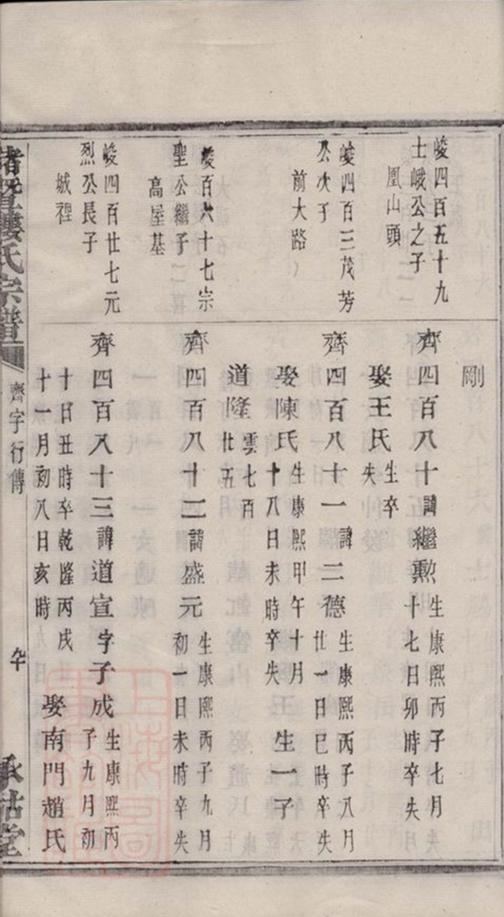 峻四百五十九
士峨公之子
鳳山頭
峻四百三茂芳
公次子
前大路
峻百六十七宗
聖公繼子
高屋基
峻四百廿七元
烈公長子
城裡
剛
齊四百八十諱繼勲生康熙丙子七月
十七日卯時卒失
娶王氏生卒
失
齊四百八十一諱二德生康熙丙子八月
廿一日巳時卒失
娶陳氏生康熙甲午十月
十八日未時卒失生一子
道隆雲七百
廿五
齊四百八十二諱盛元生康熙丙子九月
初一日未時卒失
齊四百八十三諱道宣字子成生康熙丙
子九月初
十日丑時卒乾隆丙戌
十一月初八日亥時娶南門趙氏
諸暨樓氏宗譜
齊字行傳